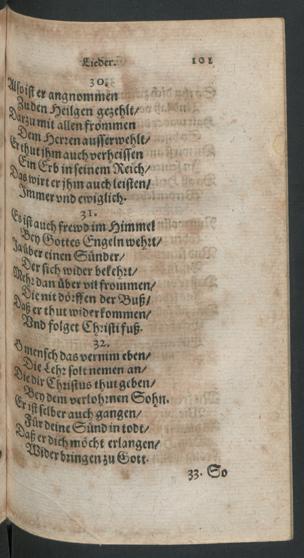 Lieder. 101
30.
Also ist er angnommen
Zu den Heilgen gezehlt/
Darzu mit allen frommen
Dem Herzen ausserwehlt/
Er thut jhm auch verheissen
Ein Erb in seinem Reich/
Das wirt er jhm auch leisten/
Jmmer vnd ewiglich.
31.
Es ist auch frewd im Himmel
Bey Gottes Engeln wehrt/
Ja über einen Sünder/
Der sich wider bekehrt/
Mehr dan über vil frommen/
Die nit dörffen der Buß/
Daß er thut widerkommen/
Vnd folget Christi fuß.
32.
O mensch das vernim eben/
Die Lehr solt nemen an/
Die dir Christus thut geben/
Bey dem verlohrnen Sohn.
Er ist selber auch gangen/
Für deine Sünd in todt/
Daß er dich möcht erlangen/
Wider bringen zu Gott.
33. So